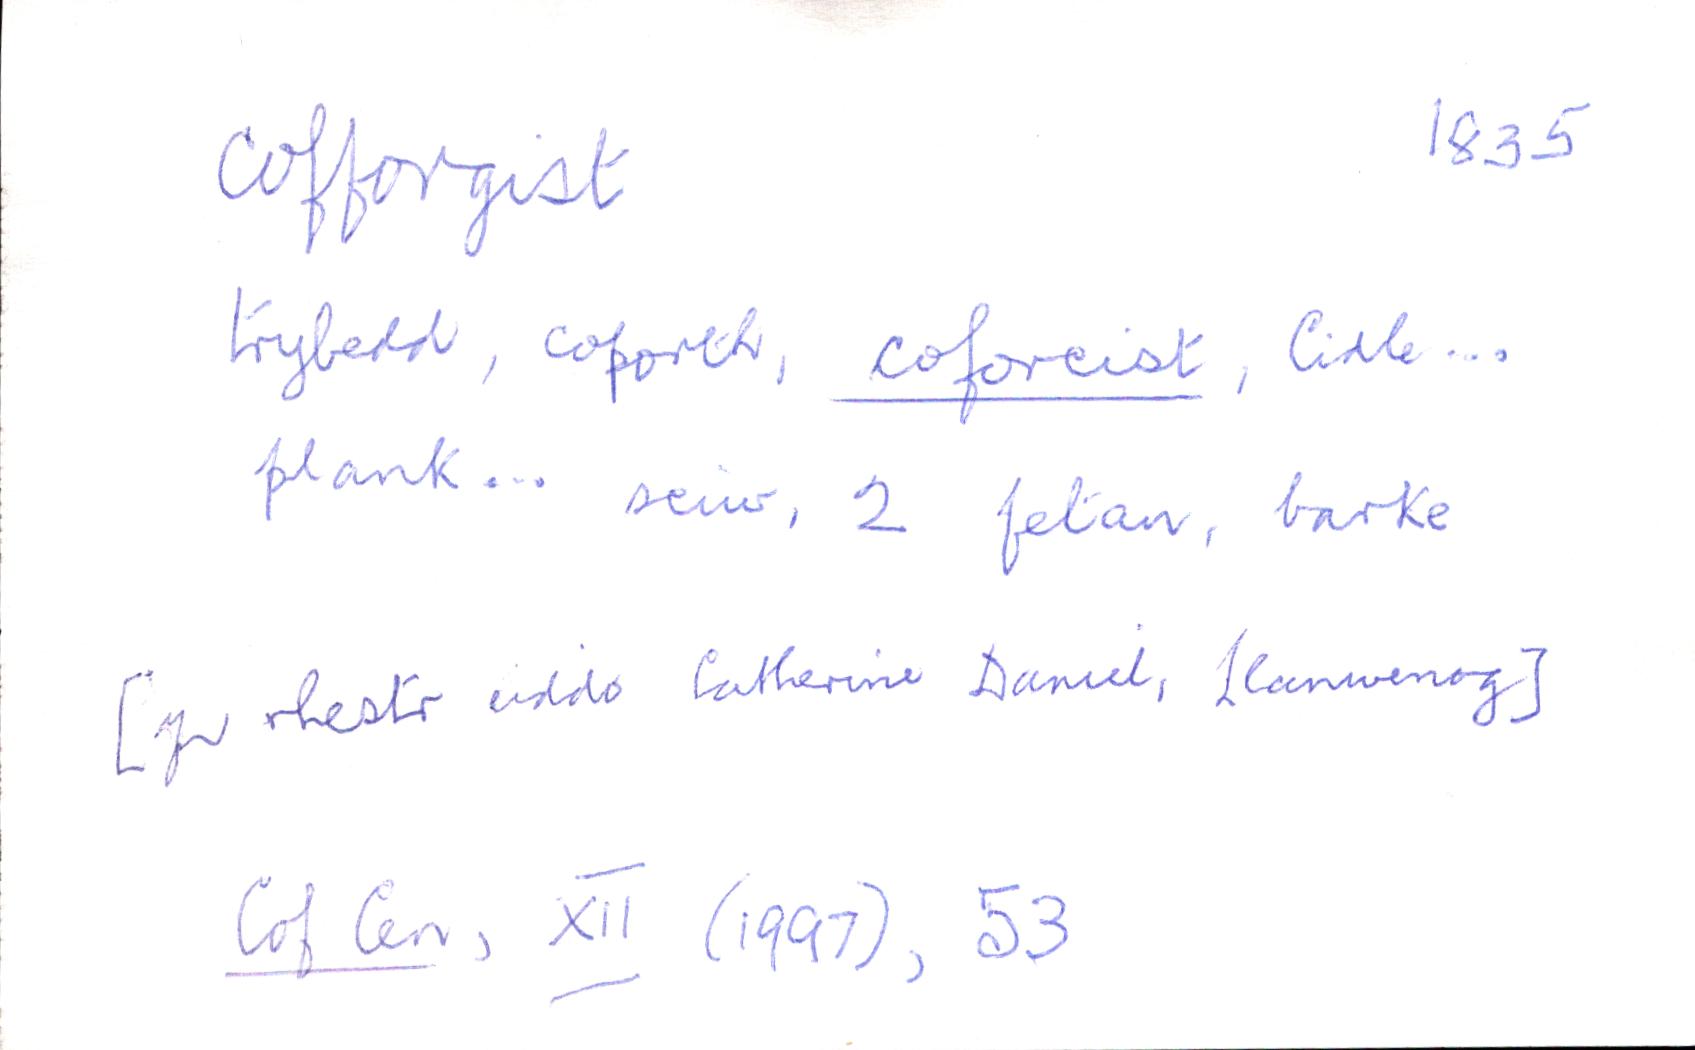 Cofforgist 1835
trybedd, coporth, coforcist, Cidle...
plank... seiw, 2 fetan, barke
[yn rhestr eiddo Catherine Daniel, Llanwenog]
Cof Cen, XII (1997), 53